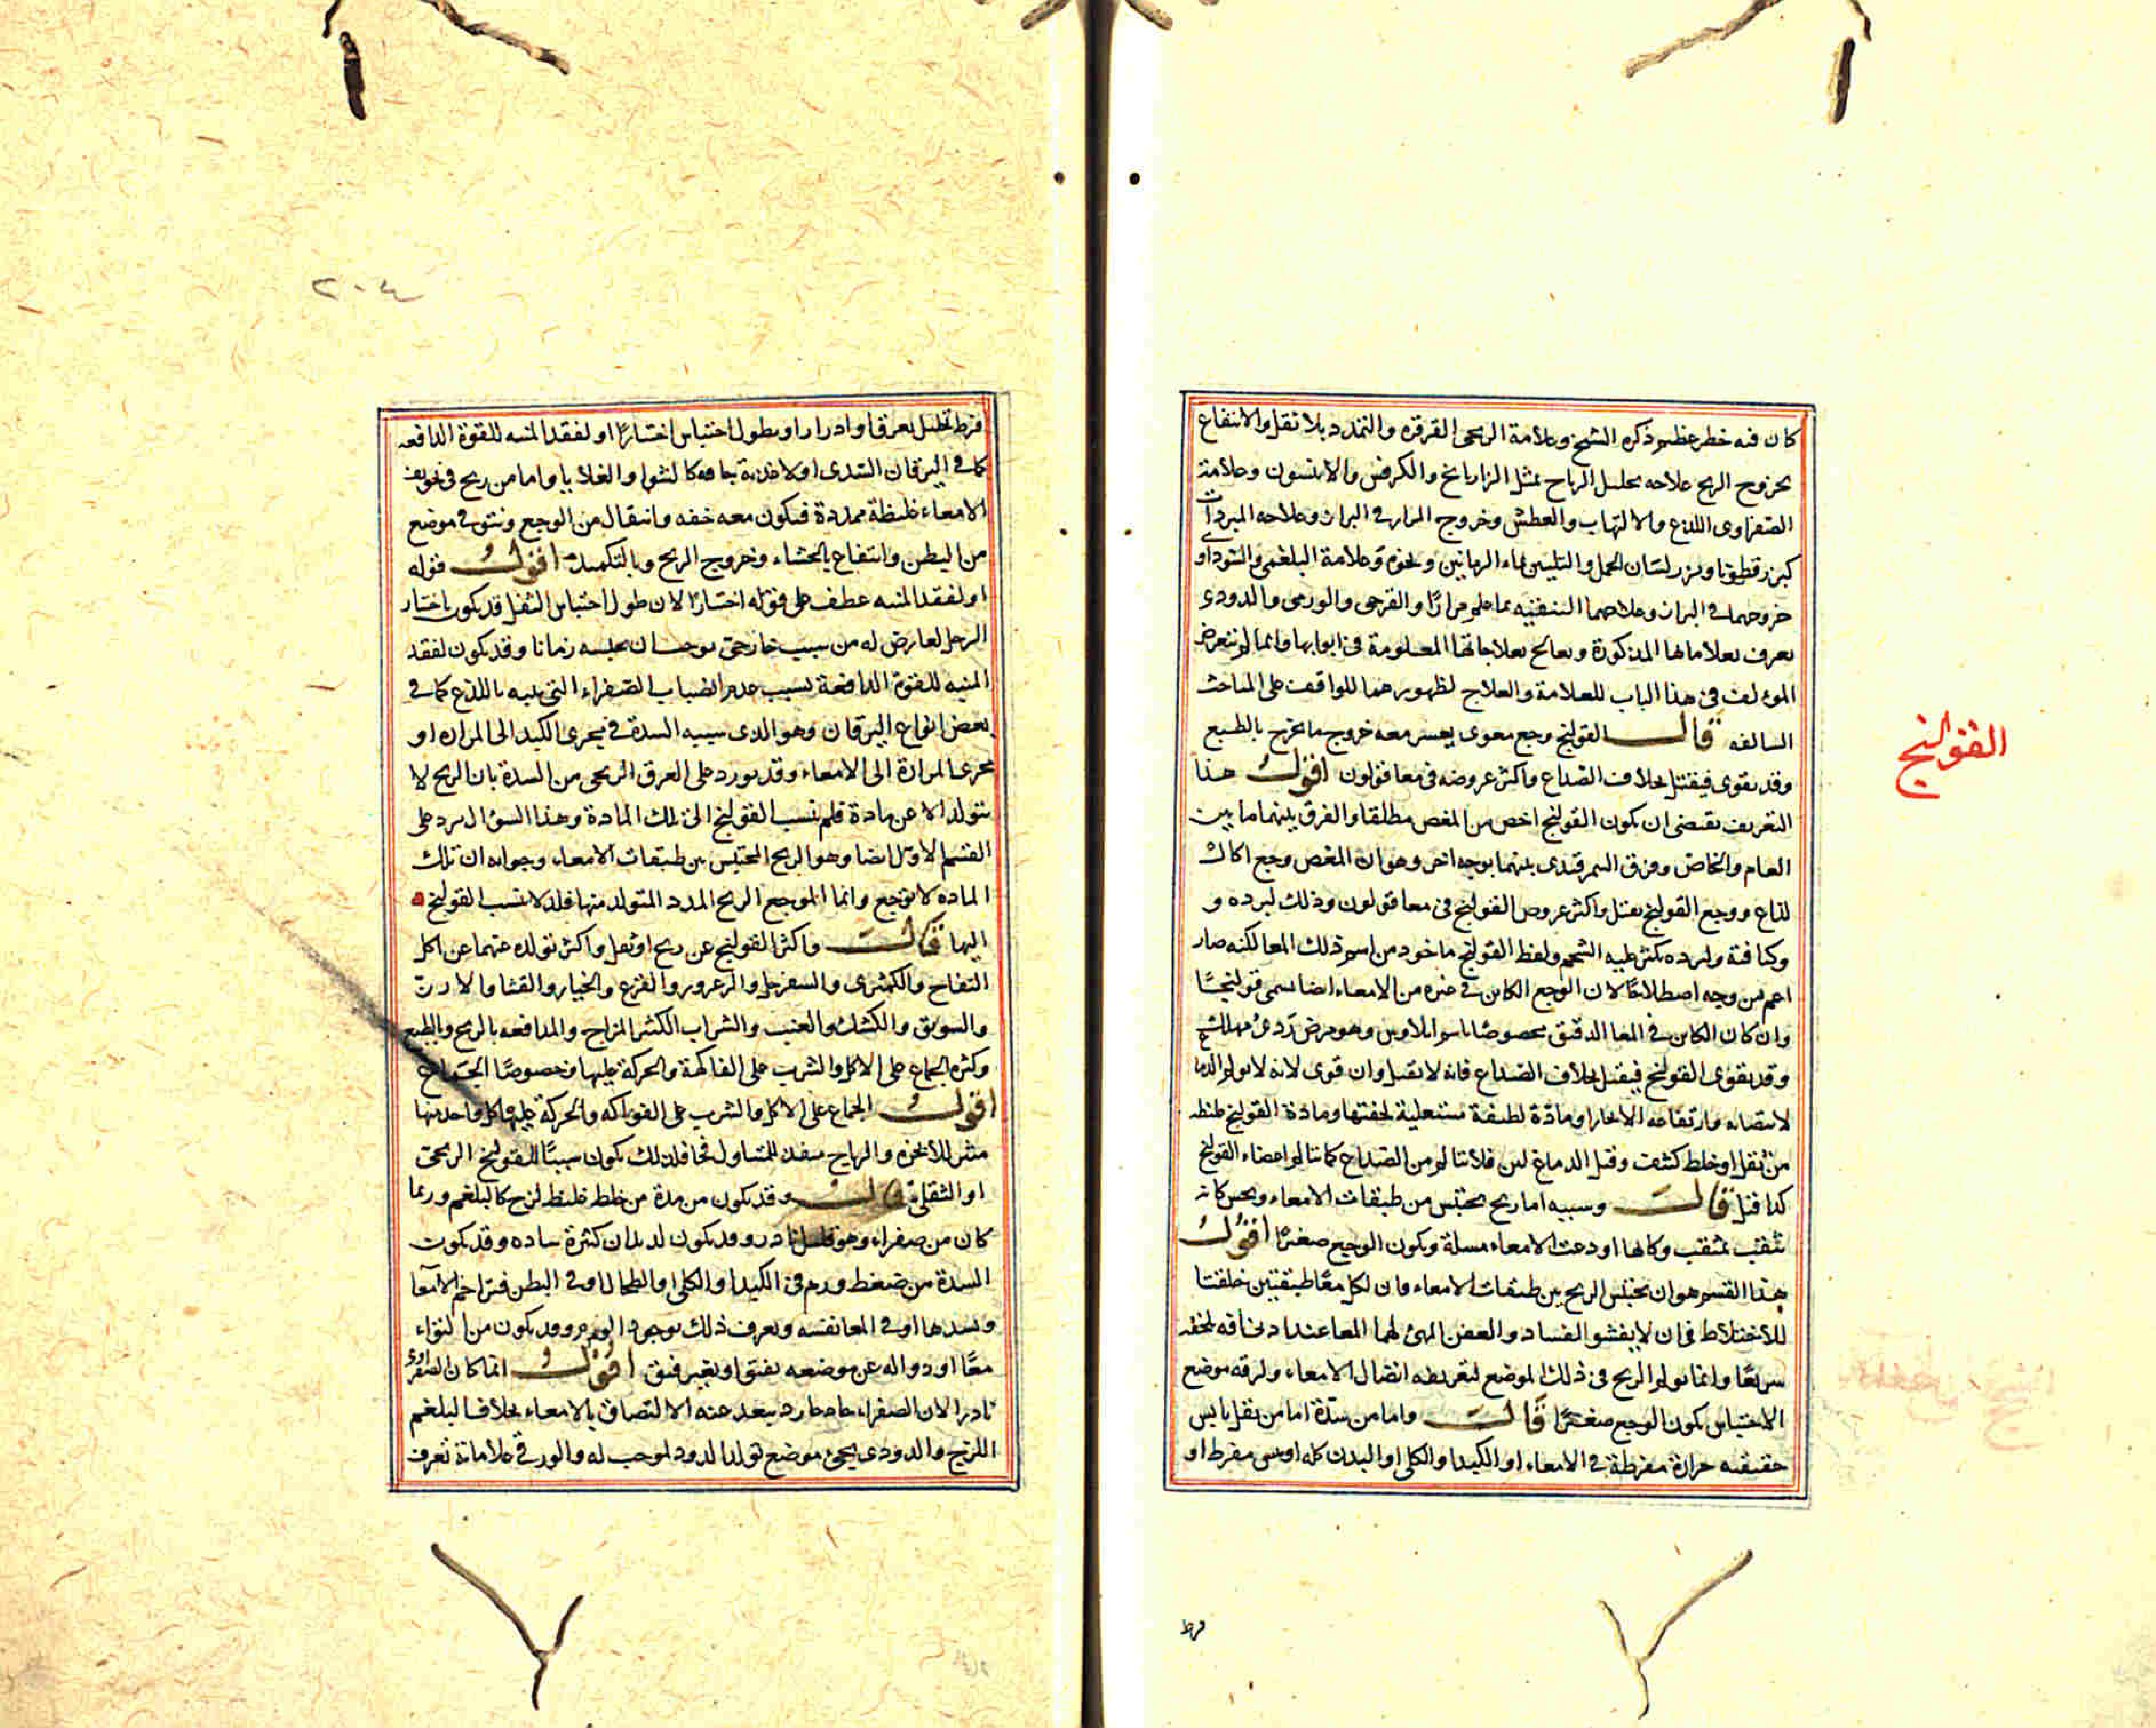 كان فيه خطر عظيم ذكره الشيخ وعلامة الريحى القرقرة والتمدد بلا ثقل والانتفاع
بخروج الريح علاجه بحليل الرياح بمثل الرازيانج والكرفس والانيسون وعلامة
الصفراوى اللذع والالتهاب والعطش وخروج المرار فى البراز وعلاجه المبردات
كبزر قطونا وبزر لسان الحمل والتليين بماء الرمانين ونحوه وعلامة البلغمى والسوداوى
خروجهما فى البراز وعلاجهما التنقيه بما علم مرارًا والقرحى والورمى والدودى
يعرف بعلاماتها المذكورة ويعالج بعلاجاتها المعلومة فى ابوابها وانما لم يتعرض
المؤلف فى هذا الباب للعلامة والعلاج لظهورهما للواقف على المباحث
السالفه قال القولنج وجع معوى يعسر معه خروج ما يخرج بالطبع
القولنج
وقد يقوى فيقتل بخلاف الصداع واكثر عروضه فى معا قولون اقول هذا
التعريف يقتضى ان يكون القولنج اخص من المغص مطلقا والفرق بينهما ما بين
العام والخاص وفرق السمرقندى بينهما بوجه اخر وهو ان المغص وجع اكال
لذاع ووجع القولنج يقتل واكثر عروض القولنج فى معا قولون وذلك لبرده و
وكثافته ولبرده يكثر عليه الشحم ولفظ القولنج ماخود من اسم ذلك المعا لكنه صار
اعم من وجه اصطلاحًا لان الوجع الكاين فى غيره من الامعاء ايضا يسمى قولنجًا
وان كان الكاين فى المعا الدقيق مخصوصًا باسم ايلاوس وهو مرض ردئ مهلك
وقد يقوى القولنج فيقتل بخلاف الصداع فانه لا يقتل وان قوى لانه لا يولم الدماغ
لانتصابه وارتفاعه الا بخار او مادة لطيفة مستعلية لخفتها ومادة القولنج غليظه
من ثفل او خلط كثيف وقيل الدماغ لين فلا يتالم من الصداع كما يتالم اعضاء القولنج
كذا قيل قال وسببه اما ريح محتبس من طبقات الامعاء ويحس كانه
يثقب بمثقب وكانها اودعت الامعاء مسلة ويكون الوجع صغيرًا اقول
هذا القسم هو ان يحتبس الريح بين طبقات الامعاء فان لكل معًا طبقتين خلقتا
للاحتلاط فى ان لا يفشو الفساد والعفن المهئ لهما المعا عند ادنى افه تلحقه
سريعًا وانما يولم الريح فى ذلك الموضع لتفريطه اتصال الامعاء ولرقه موضع
الاحتباس يكون الوجع صغيرًا قال واما من سدة اما من ثفل يابس
حقيقيه حرارة مفرطة فى الامعاء او الكبد او الكلى او البدن كله او يبس مفرط او
فرط
٢٠٤
فرط تحليل بعرق او ادرار او بطول احتباس اختيارًا او لفقد المنبه للقوة الدافعه
كما فى اليرقان السددى او لاغذية جافه كالشوا والقلايا واما من ريح فى تجويف
الامعاء غليظة ممددة فيكون معه خفه وانتقال من الوجع ونتو فى موضع
من البطن وانتفاع بالجشاء وخروج الريح وبالتكميد اقول قوله
او لفقد المنبه عطف على قوله اختيارًا لان طول احتباس الثفل قد يكون باختيار
الرجل لعارض له من سبب خارجى يوجب ان يحبسه زمانا وقد يكون لفقد
المنبه للقوة الدافعة بسبب عدم انصباب الصفراء التى تنبه باللذع كما فى
بعض انواع اليرقان وهو الذى سببه السدة فى مجرى الكبد الى المراره او
مجرى المرارة الى الامعاء وقد يورد على الفرق الريحى من السدة بان الريح لا
يتولد الا عن مادة فلم ينسب القولنج الى تلك المادة وهذا السؤال يرد على
القسم الاول ايضا وهو الريح المحتبس بين طبقات الامعاء وجوابه ان تلك
الماده لا توجع وانما الموجع الريح الممدد المتولد منها فلذلا ينسب القولنج
اليها قال واكثر القولنج عن ريح او ثفل واكثر تولده عنهما عن اكل
التفاح والكمثرى والسفرجل والزعرور والقرع والخيار والقثا والارز
والسويق والكشك والعنب والشراب الكثير المزاج والمدافعه بالريح وبالطبع
وكثرة الجماع على الاكل والشرب على الفاكهة والحركة عليها وخصوصًا الجماع
اقول الجماع على الاكل والشرب على الفواكه والحركة عليها كل واحد منها
مثير للابخره والرياح منفذ للمتناول فجا فلذلك يكون سببًا للقولنج الريحى
او الثفلى قال وقد يكون من سدة من خلط غليظ لزج كالبلغم وربما
كان من صفراء وهو قليل نادر وقد يكون لديدان كثيرة ساده وقد يكون
السدة من ضغط ورم فى الكبد او الكلى او الطحال او فى البطن فتزاحم الامعا
وتسدها او فى المعا نفسه ويعرف ذلك بوجود الورم وقد يكون من التواء
معًا او زواله عن موضعه بفتق او بغير فتق اقول انما كان الصفراوى
نادرا لان الصفراء حاد حار يبعد عنه الالتصاق بالامعاء بخلاف البلغم
اللزج والدودى يجئ موضع تولد الدود لموجب له والورمى علاماته تعرف